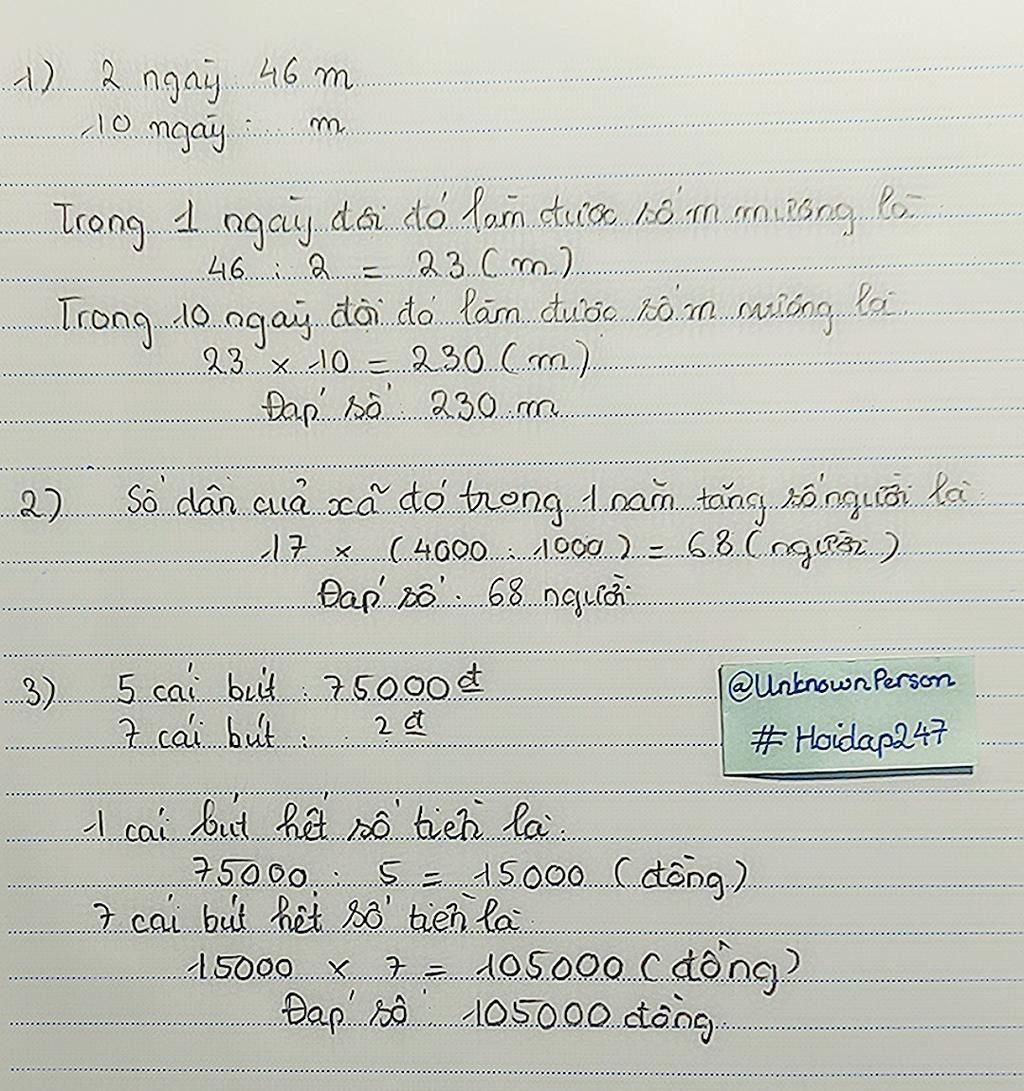 1) 2 ngày: 46 m
10 ngày: m
Trong 1 ngày đội đó làm được số m mương là
46 : 2 = 23 (m)
Trong 10 ngày đội đó làm được số m mương là.
23 x 10 = 230 (m)
Đáp số: 230 m
2) Số dân của xã đó trong 1 năm tăng số người là:
17 x (4000 : 1000) = 68 (người)
Đáp số: 68 người
3) 5 cái bút : 75000 đ
7 cái bút : ? đ
@UnknownPerson
# Hoidap247
1 cái bút hết số tiền là:
75000 : 5 = 15000 (đồng)
7 cái bút hết số tiền là
15000 x 7 = 105000 (đồng)
Đáp số: 105000 đồng.